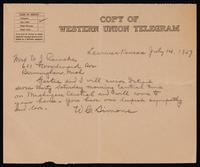 COPY OF
WESTERN UNION TELEGRAM
Lawrence Kansas July 14, 1927
Mrs E J
611 Brookwood Ave
Birmingham Mich
Gertie and I will arrive Detroit
seven thirty Saturday morning Central time
on Michigan Central and will come to
your home. You have our deepest sympathy
and love.
W C Simons